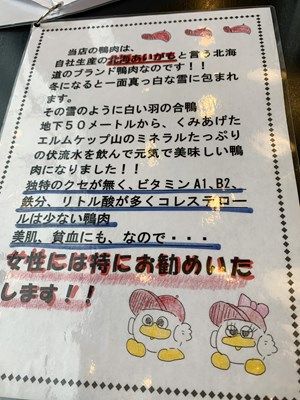 当店の鴨肉は、
自社生産の北海あいがもと言う北海
道のブランド鴨肉なのです！！
冬になると一面真っ白な雪に包まれ
ます。
その雪のように白い羽の合鴨
地下50メートルから、くみあげた
エルムケップ山のミネラルたっぷり
の伏流水を飲んで元気で美味しい鴨
肉になりました！！
独特のクセが無く、ビタミンA1、B2、
鉄分、リトル酸が多くコレステロー
ルは少ない鴨肉
美肌、貧血にも、なので・・・
女性には特にお勧めいた
します！！